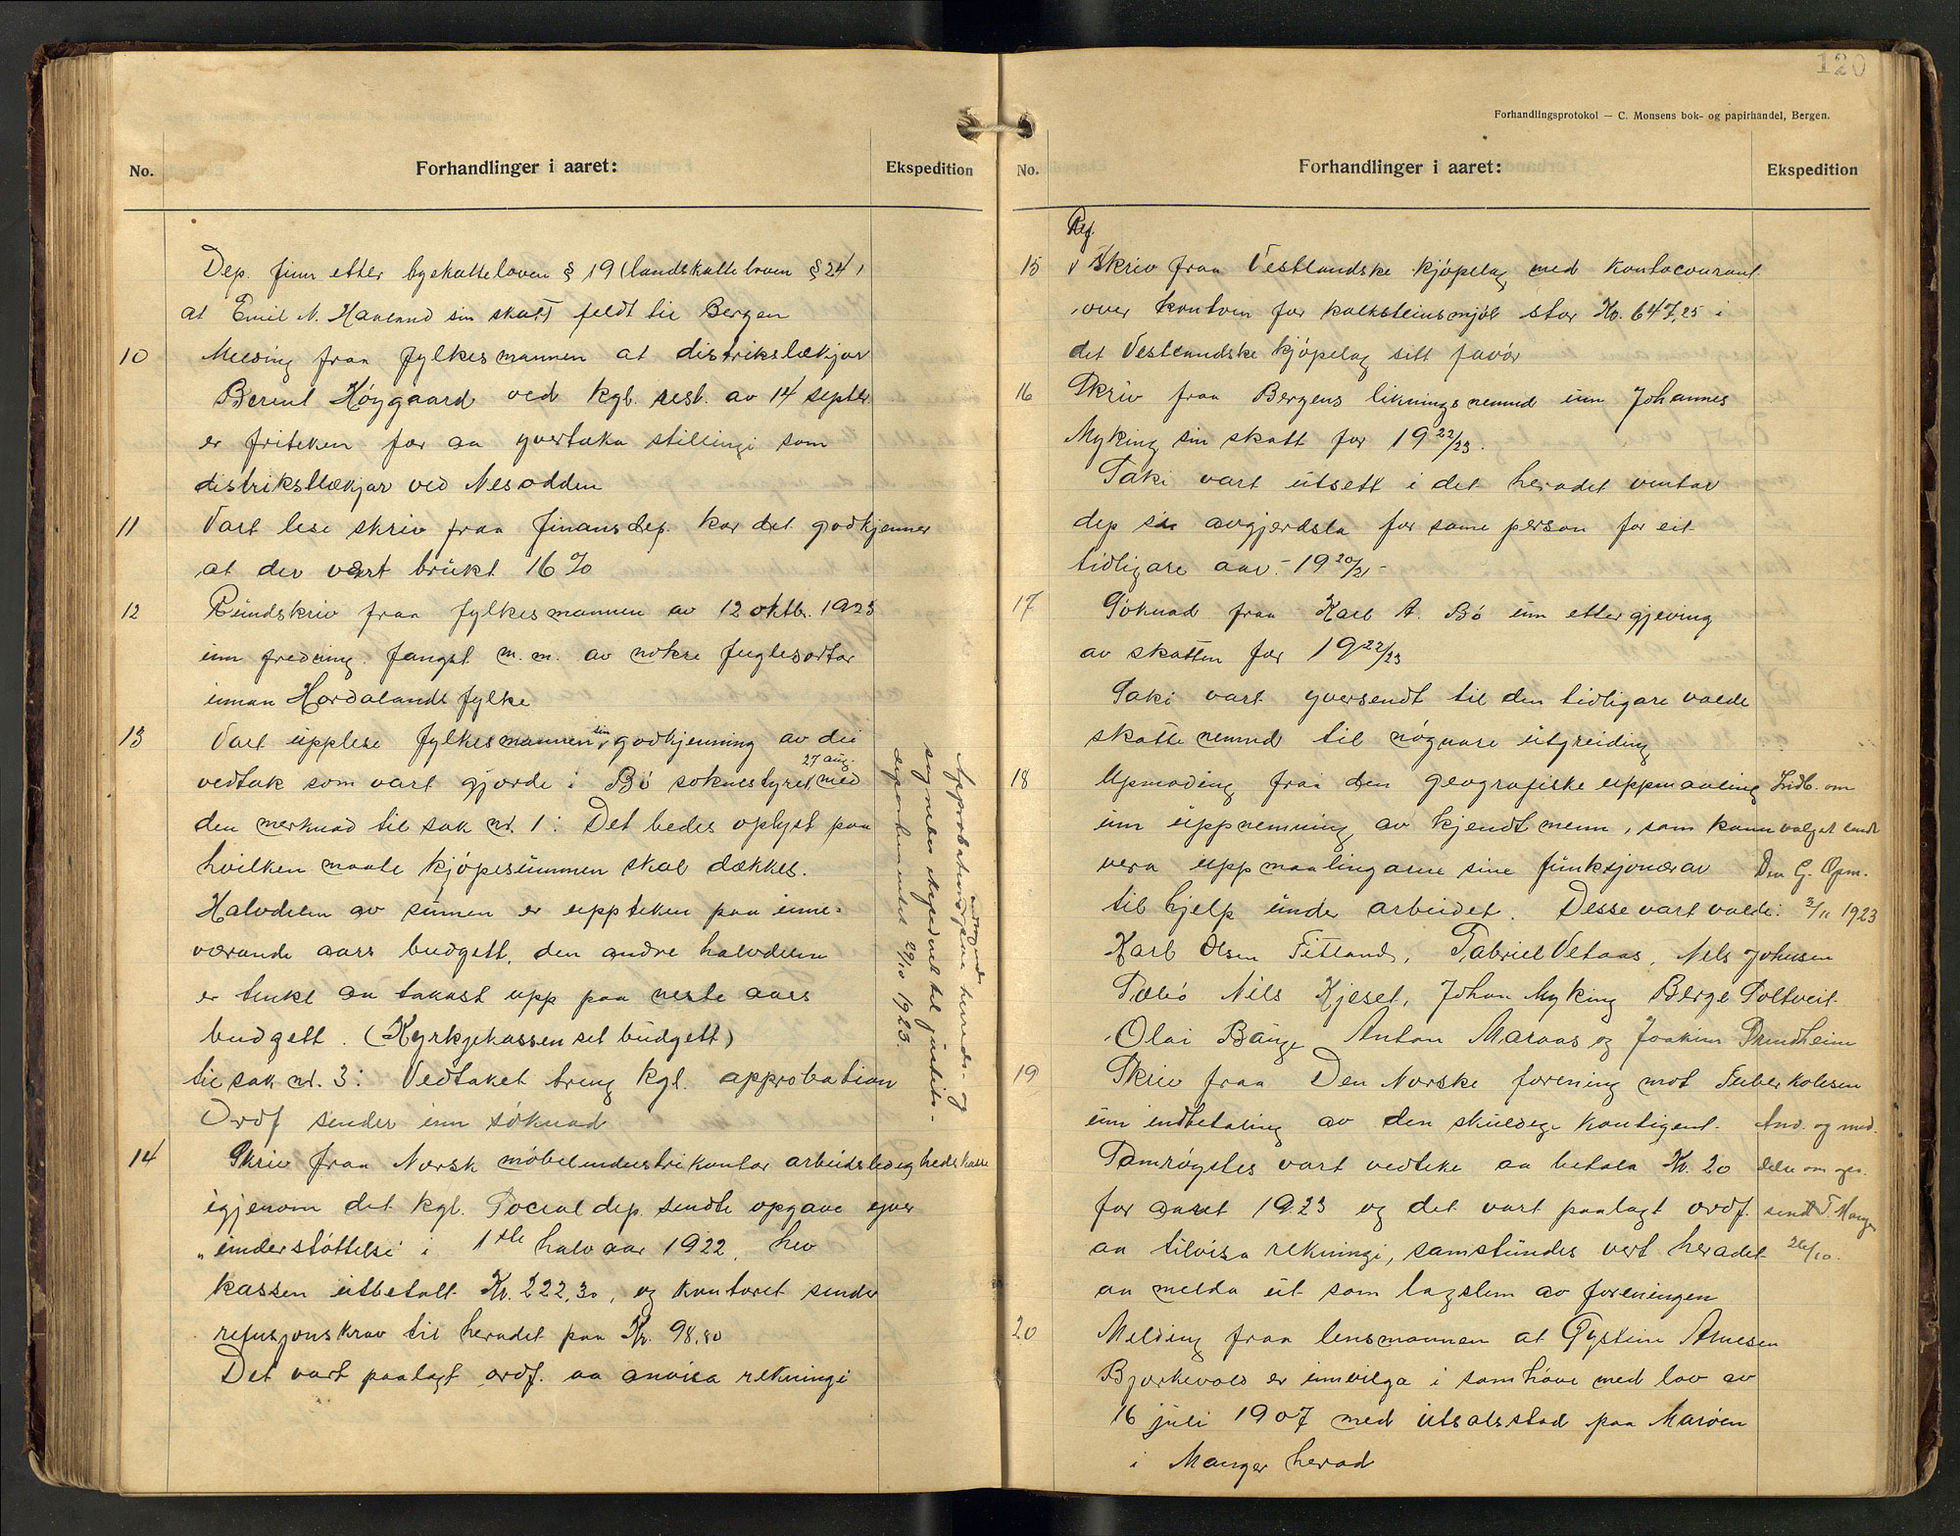 No.
Forhandlinger i aaret:
Ekspedition
Dep. finn etter byskatteloven § 19 (landskatteloven § 24)
at Emil N. Haaland sin skatt feldt til Bergen
10 Melding fraa fylkesmannen at distrikslækjar
Bernt Höygaard ved kgl. resl. av 14 septbr.
er friteken for aa yvertaka stillingi som
distrikstlækjar ved Nesodden
11 Vart lese skriv fraa finansdep. kor det godkjenner
at der vart brukt 16 %
12 Rundskriv fraa fylkesmannen av 12 oktb. 1923
um freding fangst m.m. av nokre fuglesortar
innan Hordalands fylke
13 Vart upplese fylkesmannen sin godkjenning av dei
vedtak som vart gjorde i Bö soknestyret 27 aug. med
den merknad til sak nr. 1: Det bedes oplyst paa
hvilken maate kjöpesummen skal dækkes.
Halvdelen av sumen er uppteken paa inne-
værande aars budgett, den andre halvdelen
er tenkt aa takast upp paa neste aars
budgett. (Kyrkjekassen set budgett)
til sak nr. 3: Vedtaket treng kgl. approbation
Ordf sender inn söknad
Approbation
herreds- og
sogneles
til justits-
departementet 29/10 1923.
14 Skriv fraa Norsk möbelindustrikontor arbeidsledighedskasse
igjenom det kgl. Social dep. sendte opgave yver
"understöttelse" i 1ste halvaar 1922, hev
kassen utbetalt Kr. 222,30, og kontoret sender
refusjonskrav til heradet paa Kr. 98.80
Det vart paalagt ordf. aa anvisa rekningi
120
Forhandlingsprotokol — C. Monsens bok- og papirhandel, Bergen.
No.
Forhandlinger i aaret:
Ekspedition
Ref.
15 Skriv fraa Vestlandske kjöpelag med Kontocourant
over kontoen for kalksteinsmjöl stor Kr. 647,25 i
det Vestlandske kjöpelag sitt favör
16 Skriv fraa Bergens likningsnemnd um Johannes
Myking sin skatt for 1922/23.
Saki vart utsett i det heradet ventar
dep sin avgjerdsla for same person for eit
tidligare aar. - 1920/21 -
17 Söknad fraa Karl A. Bö um ettergjeving
av skatten for 1922/23
Saki vart yversendt til den tidligare valde
skattenemnd til nögnare utgreiding
18 Upmoding fraa den geografiske uppmaaling
um uppnemning av kjendtmenn, som kann
vera uppmaalingarne sine funksjonærar
til hjelp under arbeidet. Desse vart valde:
Indb. om
valget sendt
Den G. Opm.
3/11 1923
Karl Olsen Titland, Gabriel Vetaas, Nels Johnsen
Sæbö Nils Kjeset, Johan Myking Berge Soltveit
Olai Bauge Anton Maraas og Joakim Trondheim
19 Skriv fraa Den Norske forening mot Tuberkolosen
um indbetaling av den skuldige kontigent.
Samröystes vart vedteke aa betala Kr. 20
for aaret 1923 og det vart paalagt ordf.
aa tilvisa rekningi, samstundes vert heradet
aa melda ut som lagslem av foreningen
Anv. og med-
delse om ops.
sendt T. Manger
26/10.
20 Melding fraa lensmannen at Öystein Arnesen
Bjorkevold er innvilga i samhöve med lov av
16 juli 1907 med utsalsstad paa Maröen
i Manger herad